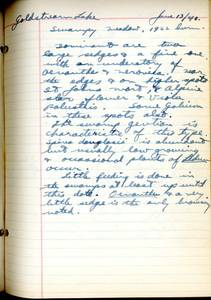 Goldstream Lake June 13/40.
Swampy meadow, 1922 burn.
Dominant are two
large sedges & a fine one
with an understory of
Oenanthe & veronica. near
the edges & on higher spots
St Johns wort, & alpine
star flower & Viola
palustris. Some Galium
in these spots also.
The swamp gentian is
characteristic of this type.
Spirea douglasii is abundant
but usually low growing
& occassional plants of
occur.
Little feeding is done in
the swamps at least up until
this date. Oenanthe & a very
little sedge is the only browsing
noted.